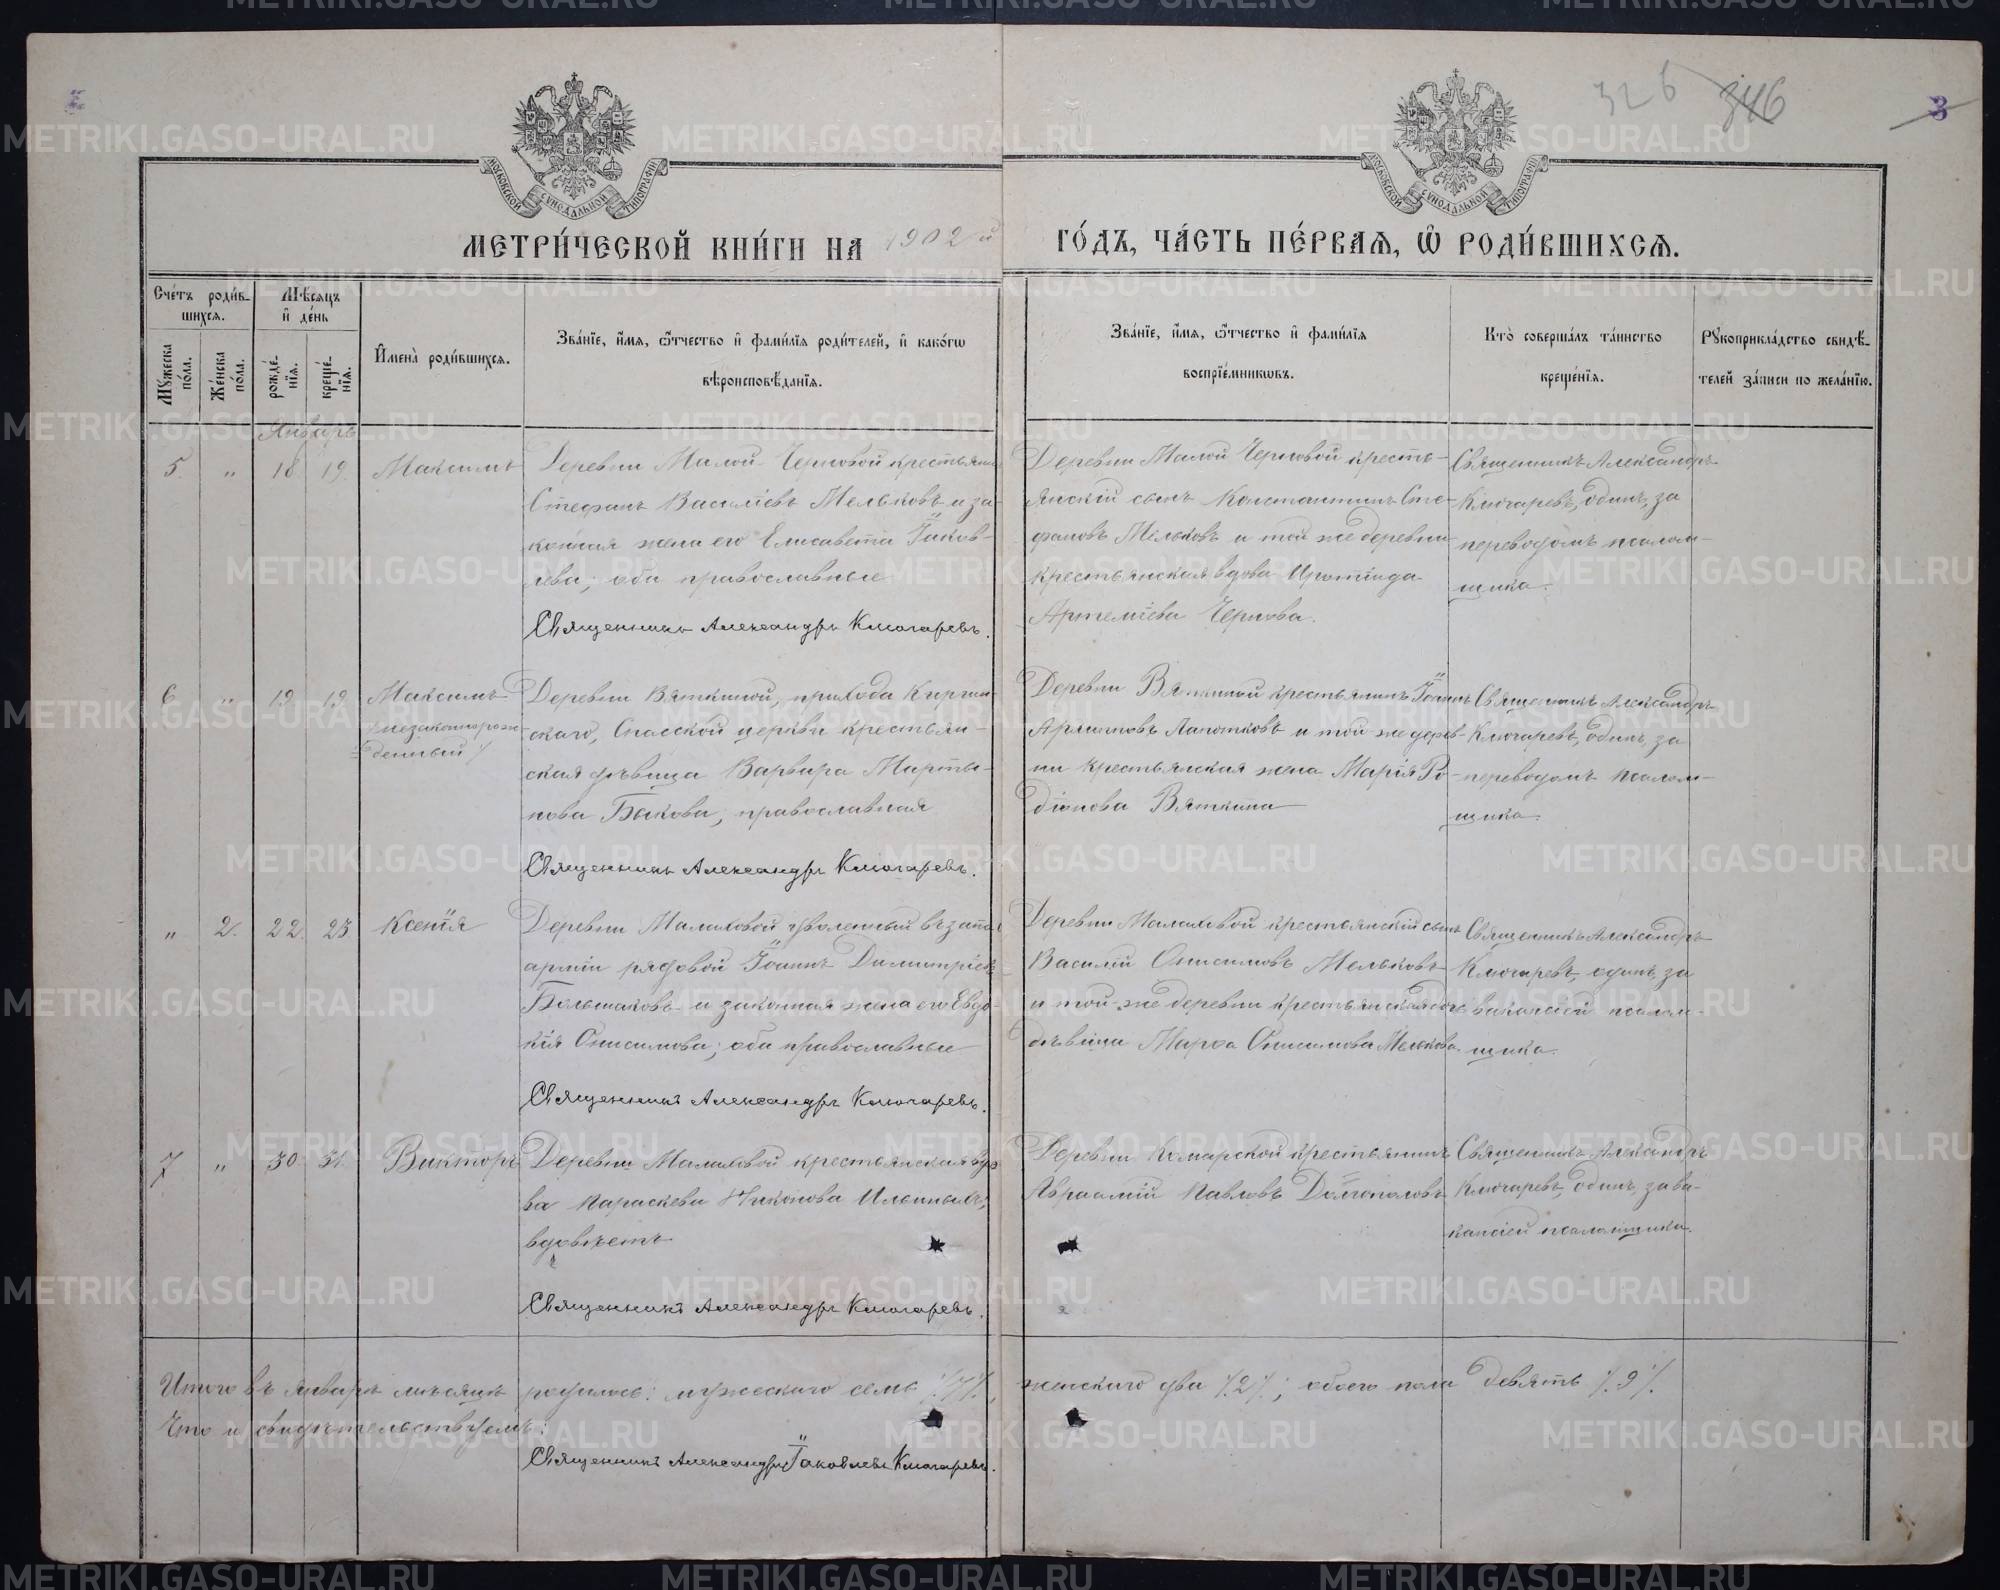 326 346 3
МОСКОВСКОЙ СѴНОДАЛЬНОЙ ТИПОГРАФІИ
МОСКОВСКОЙ СѴНОДАЛЬНОЙ ТИПОГРАФІИ
МЕТРИ́ЧЕСКОЙ КНИ́ГИ НА 1902 й ГО́ДЪ, ЧА́СТЬ ПЕ́РВАѦ, Ѽ РОДИ́ВШИХСѦ.
Сче́тъ роди́вшихся.
Мѣ́сяцъ и҆ де́нь
Мꙋ́жеска по́ла.
Же́нска по́ла.
рожде́нїя.
креще́нїя.
И҆мена̀ роди́вшихся.
Зва́нїе, и҆́мя, ѻ҆́тчество и҆ фами́лїя роди́телей, и҆ како́гѡ
вѣроисповѣ́данїя.
Зва́нїе, и҆́мя, ѻ҆́тчество и҆ фами́лїя
воспрїе́мникѡвъ.
Кто̀ соверша́лъ та́инство
креще́нїя.
Рꙋкоприкла́дство свидѣ́-
телей за́писи по жела́нїю.
Январь
5. " 18 19. Максимъ
Деревни Малой Черновой крестьянинъ
Стефанъ Василіевъ Мельковъ и за-
конная жена его Елисавета Іаков-
лева; оба православные
Священникъ Александръ Ключаревъ.
Деревни Малой Черновой кресть-
янскій сынъ Константинъ Сте-
фановъ Мельковъ и той же деревни
крестьянская вдова
Артеміева Чернова.
Священникъ Александръ
Ключаревъ, одинъ, за
переводомъ псалом-
щика.
6 " 19 19 Максимъ
(незаконорож-
денный)
Деревни Вяткиной, прихода Киргин-
скаго, Спасской церкви крестьян-
ская дѣвица Варвара Марты-
нова Быкова, православная
Священникъ Александръ Ключаревъ.
Деревни Вяткиной крестьянинъ Іоаннъ
Лапотковъ и той же дерев-
ни крестьянская жена Марія Ро-
діонова Вяткина
Священникъ Александръ
Ключаревъ, одинъ, за
переводомъ псалом-
щика.
" 2. 22. 23 Ксенія
Деревни Малаховой уволенный въ запас
арміи рядовой Іоаннъ Димитріевъ
Большаковъ и законная жена его Евдо-
кія Онисимова; оба православные
Священникъ Александръ Ключаревъ.
Деревни Малаховой крестьянскій сынъ
Василій Онисимовъ Мельковъ
и той-же деревни крестьянская дочь
дѣвица Марѳа Онисимова Мелькова
Священникъ Александръ
Ключаревъ, одинъ, за
вакансіей псалом-
щика.
7 " 30 31. Викторъ
Деревни Малаховой крестьянская вдо-
ва Параскева Никонова Ильиныхъ,
вдовѣетъ
Священникъ Александръ Ключаревъ.
Деревни Комарской крестьянинъ
Авраамій Павловъ Долгополовъ
Священникъ Александръ
Ключаревъ, одинъ, за ва-
кансіей псаломщика.
Итого въ январѣ мѣсяцѣ родилось: мужескаго семь /.7./, женскаго два /.2./; обоего пола девять /.9./.
Что и свидѣтельствуемъ:
Священникъ Александръ Іаковлевъ Ключаревъ.
METRIKI.GASO-URAL.RU